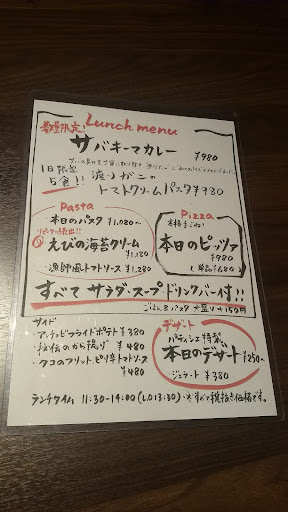 数量限定! Lunch menu
サバキーマカレー ¥980
1日限定
5食!!
渡りがにの
トマトクリームパスタ ¥980
Pasta
本日のパスタ ¥1,080〜
えびの海苔クリーム
¥1,180
・漁師風トマトソース ¥1,280
Pizza
本格手ごね!
本日のピッツァ
¥980
(単品¥680)
すべて サラダ・スープ ドリンクバー付!!
ごはん&パスタ 大盛り ¥150円
サイド
・アンチョビフライドポテト ¥380
・秘伝のから揚げ ¥480
・タコのフリット、ピリ辛トマトソース
¥480
デザート
パティシエ特製
本日のデザート ¥250〜
・ジェラート ¥380
ランチタイム 11:30-14:00 (L.O 13:30)・※すべて税抜き価格です。